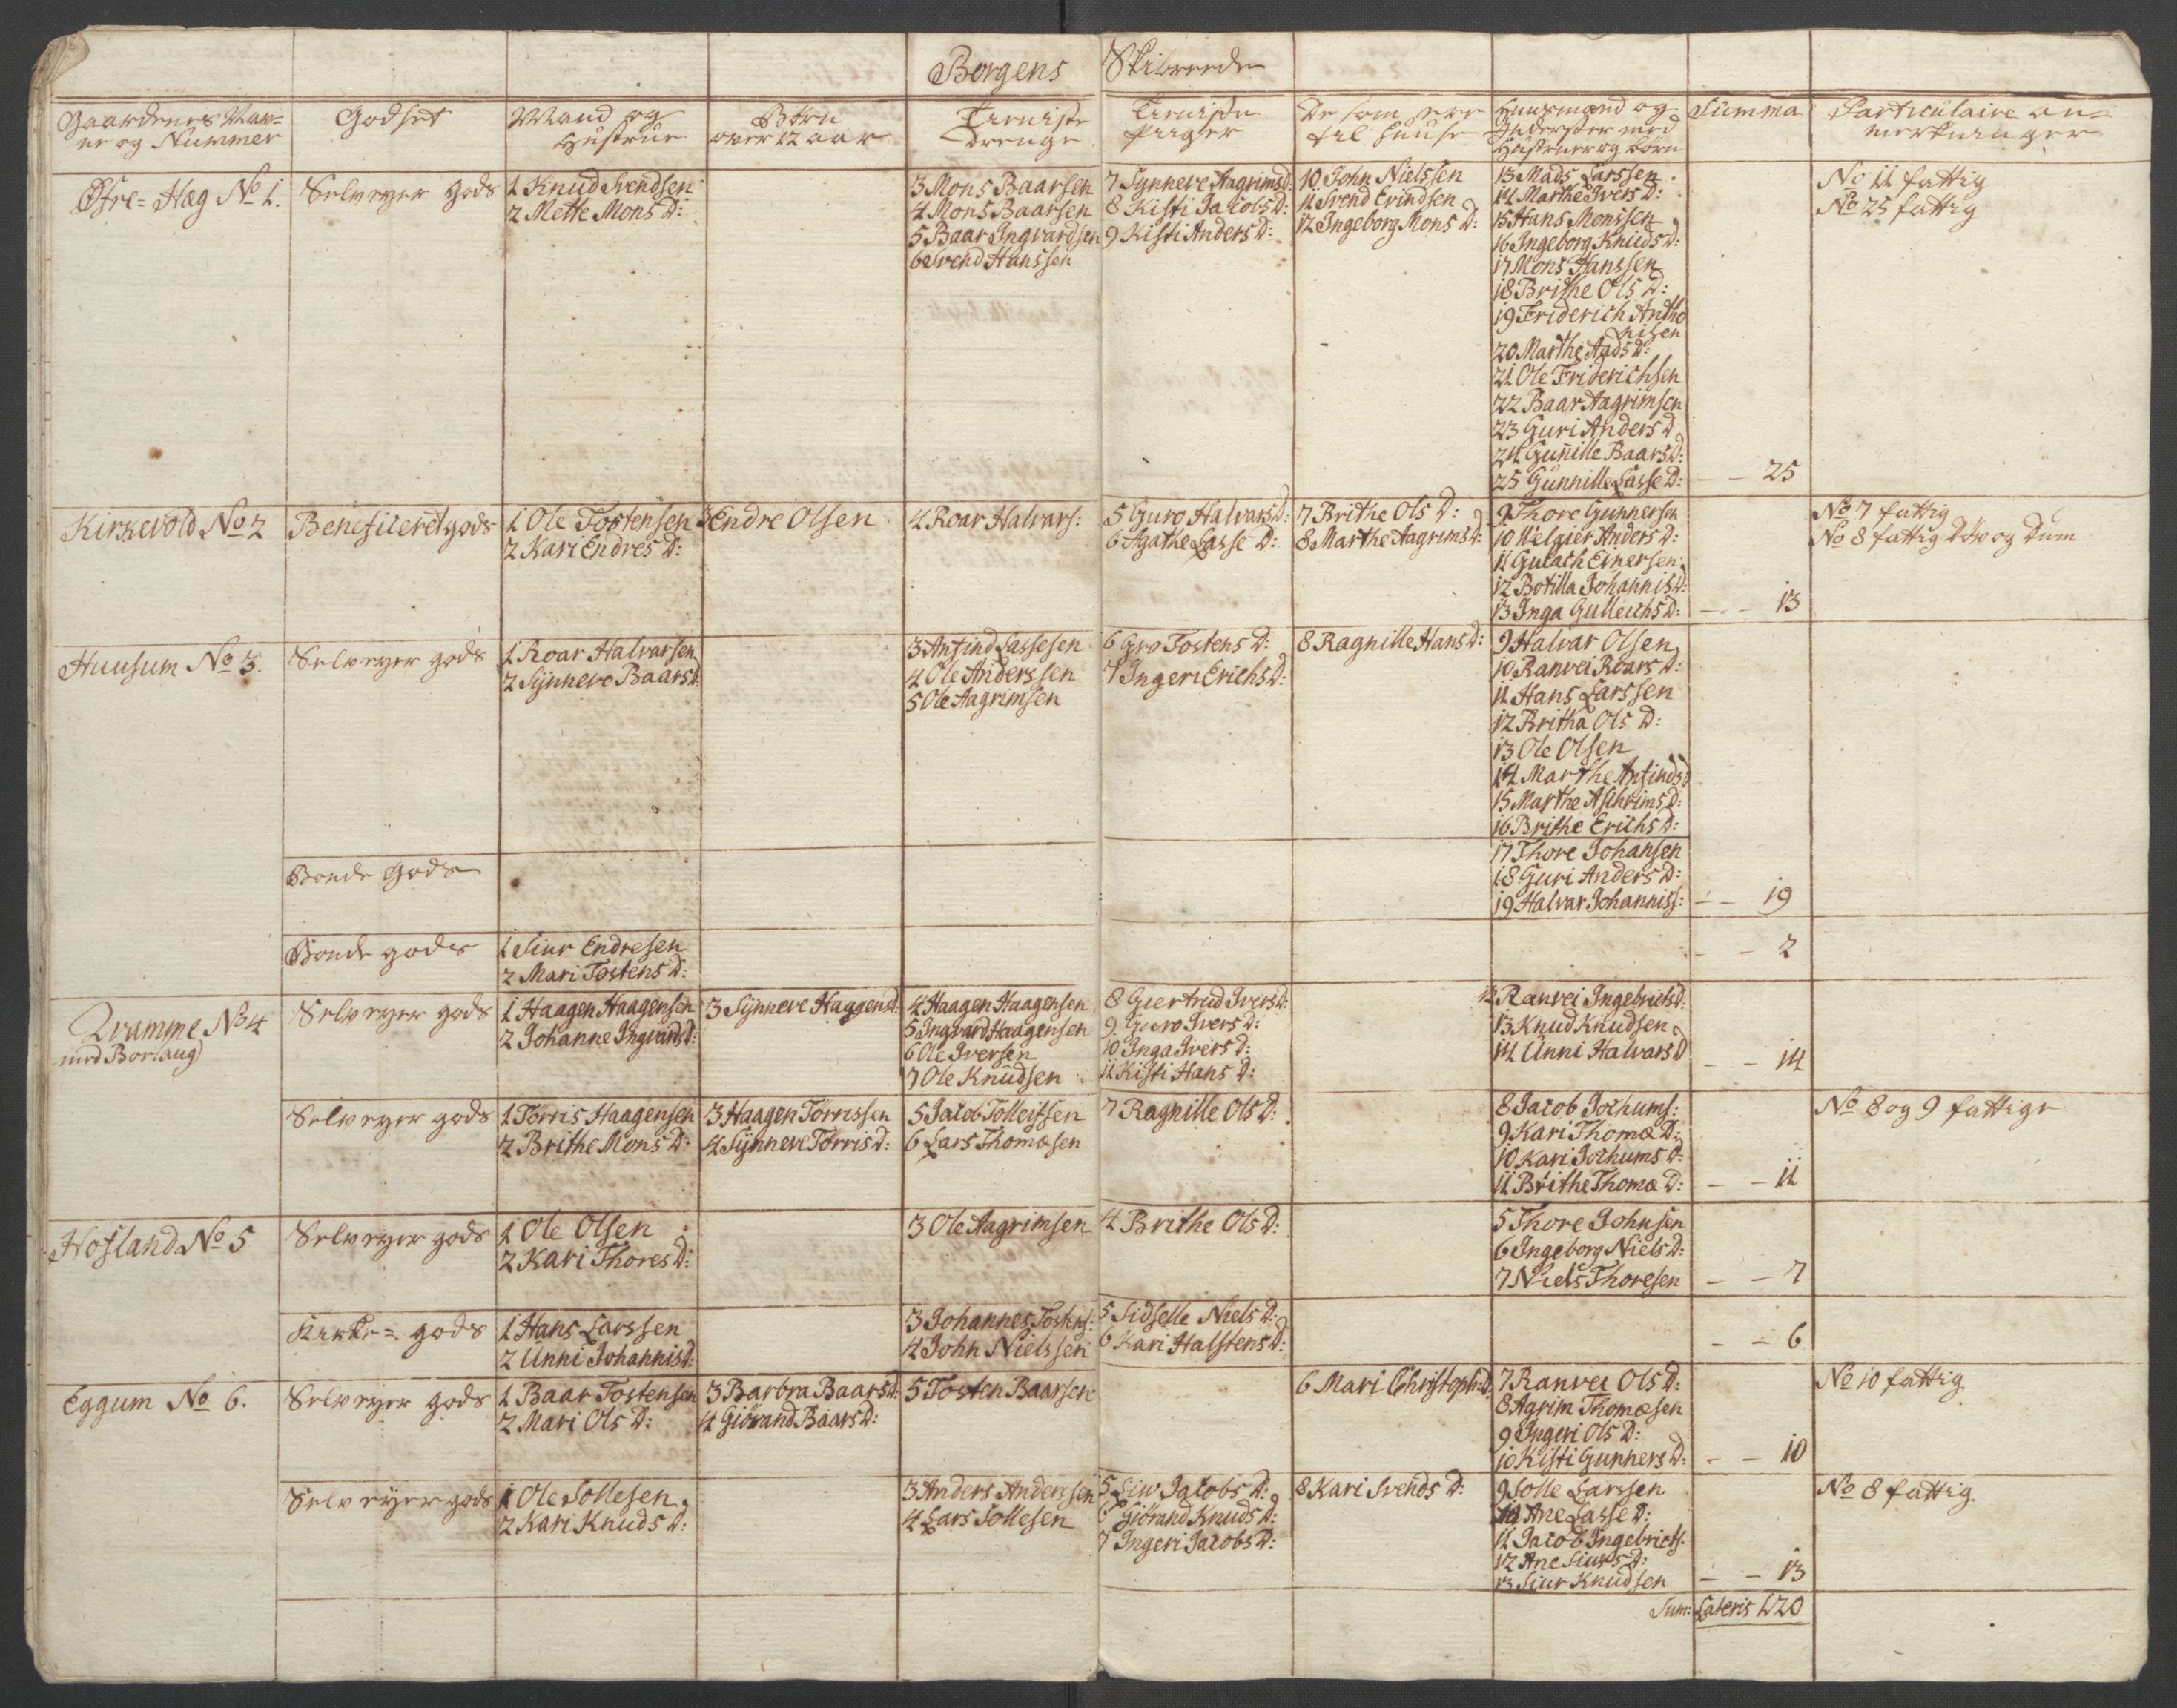 Borgens Skibreede
Gaardenes Nav=
ne og Nummer
Godset
Mand og
Hustrue
Børn
over 12 aar
Tieniste
Drenge
Tieniste
Piiger
De som ere
til Huuse
Huusmænd og
Inderster med
Hustruer og børn
Summa
Particulaire an=
merkninger
Øfre= Hæg No 1.
Selveyer gods
1 Knud Svendsen
2 Mette Mons D:
3 Mons Baarsen
4 Mons Baarsen
5 Baar Ingvardsen
6 Svend Hanssen
7 Synneve Aagrims D:
8 Kisti Jacobs D:
9 Kisti Anders D:
10 John Nielssen
11 Svend Evindsen
12 Ingeborg Mons D:
13 Mads Larssen
14 Marthe Ivers D:
15 Hans Monssen
16 Ingeborg Knuds D:
17 Mons Hanssen
18 Brithe Ols D:
19 Friderich Antho
nisen
20 Marthe Aads D:
21 Ole Friderichsen
22 Baar Aagrimsen
23 Guri Anders D
24 Gunille Baars D:
25 Gunnille Lasse D:
- - 25
No 11 fattig
No 25 fattig
Kirkevold No 2
Beneficeret gods
1 Ole Tostensen
2 Kari Endres D:
3 Endre Olsen
4 Roar Halvars:
5 Guro Halvars D:
6 Agathe Lasse D:
7 Brithe Ols D:
8 Marthe Aagrims D:
9 Thore Gunnersen
10 Welgier Anders D:
11 Gulach Einersen
12 Botilla Johannis D:
13 Inga Gulleichs D:
- - 13
No 7 fattig
No 8 fattig Døv og Dum
Huusum No 3.
Selveyer gods
1 Roar Halvarsen
2 Synneve Baars D:
3 Anfind Lassesen
4 Ole Anderssen
5 Ole Aagrimsen
6 Gro Tostens D:
7 Ingeri Erichs D:
8 Ragnille Hans D:
9 Halvar Olsen
10 Ranvei Roars D:
11 Hans Larssen
12 Britha Ols D:
13 Ole Olsen
14 Marthe Anfinds D
15 Marthe Aschrims D:
16 Brithe Erichs D:
Bonde Gods
17 Thore Johansen
18 Guri Anders D:
19 Halvar Johanniss:
- - 19
Bonde gods
1 Siur Endresen
2 Mari Tostens D:
- - 2
Qvamme No 4
med Borlaug
Selveyer gods
1 Haagen Haagensen
2 Johanne Ingvards D:
3 Synneve Haagens D:
4 Haagen Haagensen
5 Ingvard Haagensen
6 Ole Iversen
7 Ole Knudsen
8 Giertrud Ivers D:
9 Guro Ivers D:
10 Inga Ivers D:
11 Kisti Hans D:
12 Ranvei Ingebricts D:
13 Knud Knudsen
14 Unni Halvars D
- - 14
Selveyer gods
1 Torris Haagensen
2 Brithe Mons D:
3 Haagen Torrissen
4 Synneve Torris D:
5 Jacob Tolleifsen
6 Lars Thomæsen
7 Ragnille Ols D:
8 Jacob Jochums:
9 Kari Thomæ D:
10 Kari Jochums D:
11 Brithe Thomæ D:
- - 11
No 8 og 9 fattige
Hofland No 5
Selveyer gods
1 Ole Olsen
2 Kari Thores D:
3 Ole Aagrimsen
4 Brithe Ols D:
5 Thore Johnsen
6 Ingeborg Niels D:
7 Niels Thoresen
- - 7
Kirke= gods
1 Hans Larssen
2 Unni Johannis D:
3 Johannes Tostens:
4 John Nielssen
5 Sidselle Niels D:
6 Kari Halstens D:
- - 6
Eggum No 6.
Selveyer gods
1 Baar Tostensen
2 Mari Ols D:
3 Barbra Baars D:
4 Giørand Baars D:
5 Tosten Baarsen
6 Mari Christoph: D:
7 Ranvei Ols D:
8 Agrim Thomæsen
9 Ingeri Ols D:
10 Kisti Gunners D:
- - 10
No 10 fattig
Selveyer gods
1 Ole Sollesen
2 Kari Knuds D:
3 Anders Anderssen
4 Lars Sollesen
5 Liv Jacobs D:
6 Giørand Knuds D:
7 Ingeri Jacobs D:
8 Kari Svends D:
9 Solle Larssen
10 Ane Lasse D:
11 Jacob Ingebricts:
12 Ane Siurs D:
13 Siur Knudsen
- - 13
No 8 fattig
Sum: Lateris 120